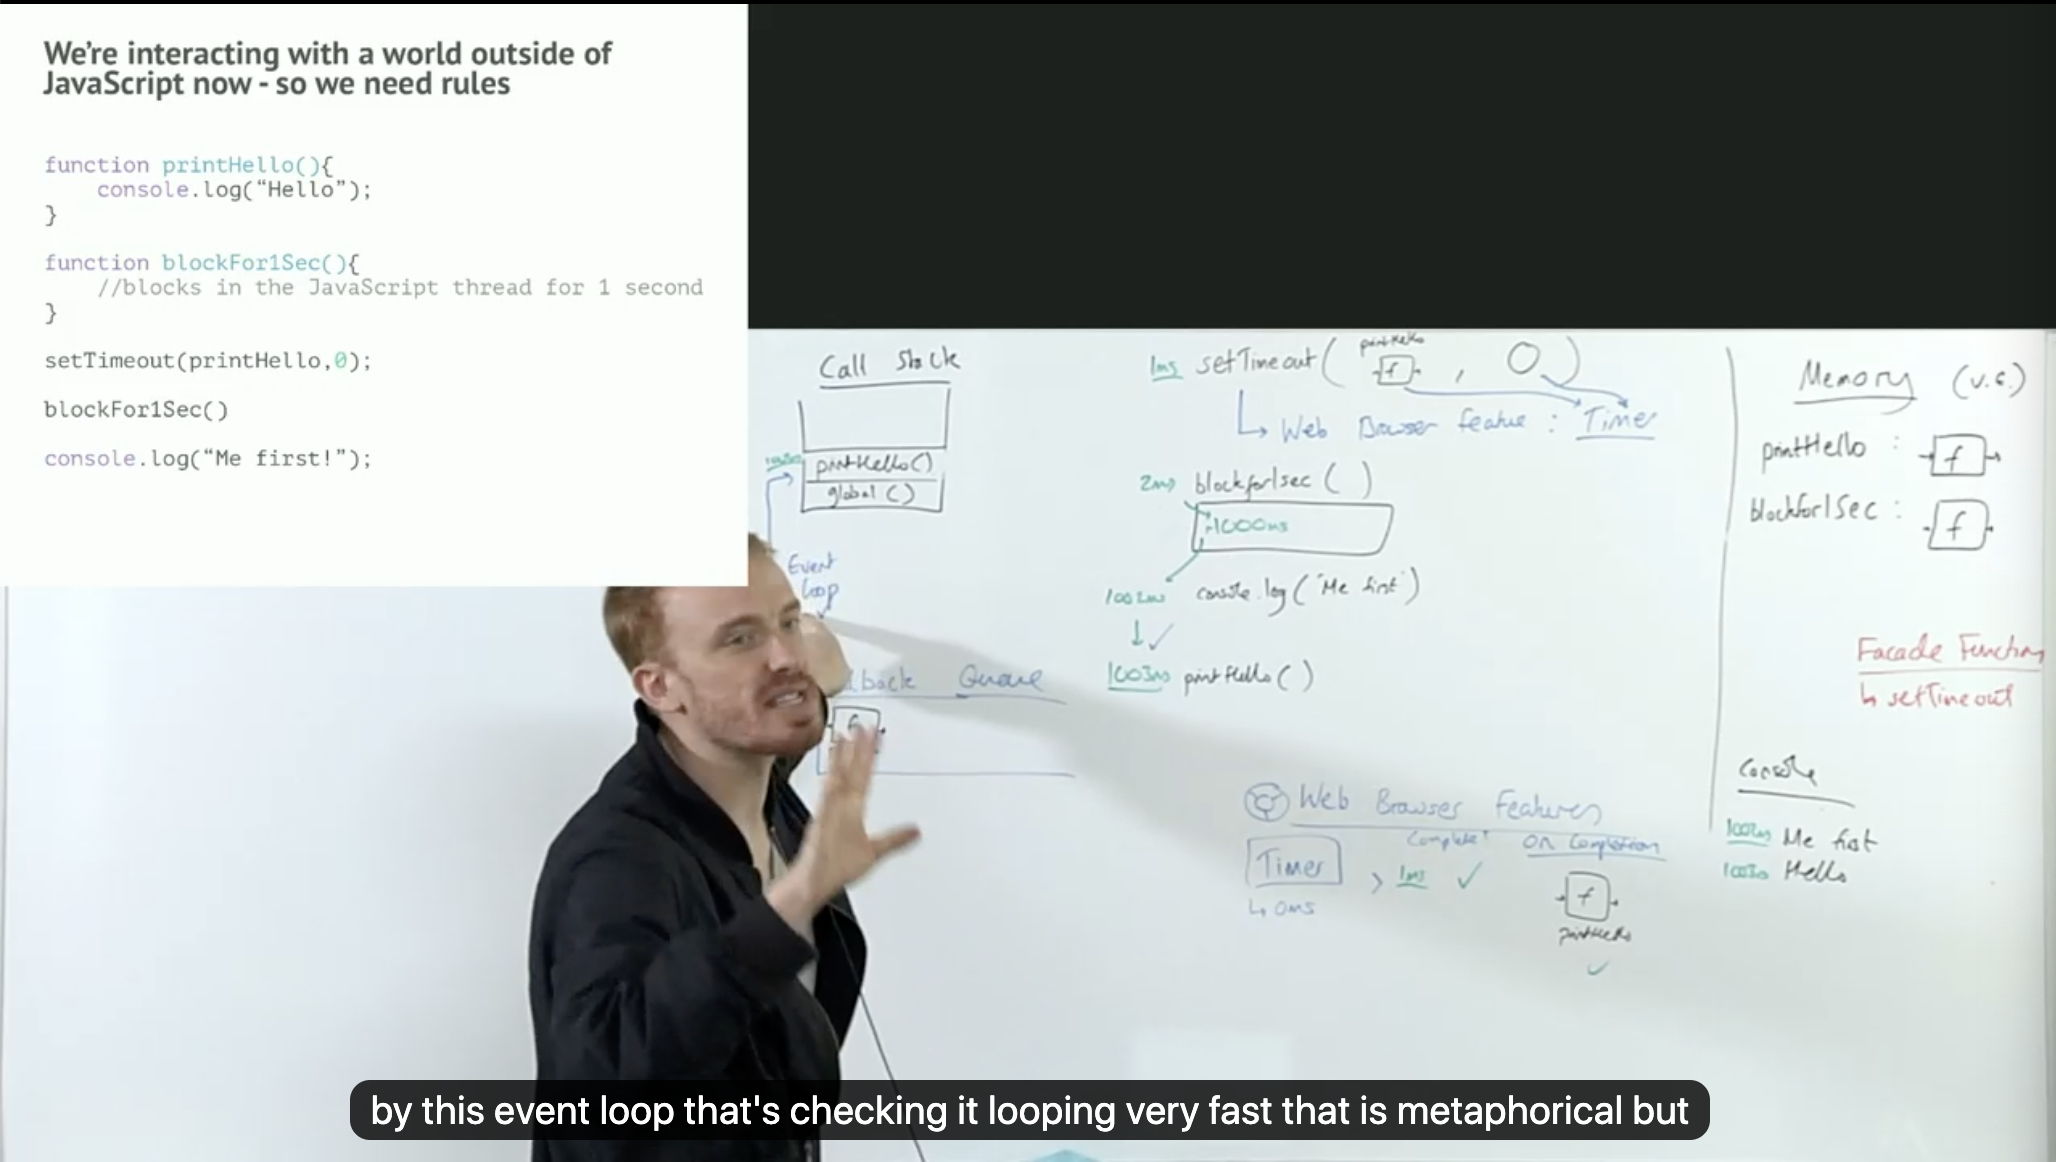 We're interacting with a world outside of
JavaScript now - so we need rules
function printHello(){
console.log("Hello");
}
function blockFor1Sec(){
//blocks in the JavaScript thread for 1 second
}
setTimeout(printHello,0);
blockFor1Sec()
console.log("Me first!");
Call Stack
printHello()
global()
Event
loop
Queue
f
1ms setTimeout( printHello f , 0 )
↳ Web Browser feature : Timer
2ms blockfor1sec ( )
1000ms
1002ms console.log("Me first")
↓ ✓
1003ms printHello()
Web Browser Features
Timer > 1ms ✓
Complete?
On Completion
↳ 0ms
f
printHello
✓
Memory (v.e.)
printHello : f
blockfor1Sec : f
Facade Function
↳ setTimeout
Console
1002ms Me first
1003ms Hello
by this event loop that's checking it looping very fast that is metaphorical but